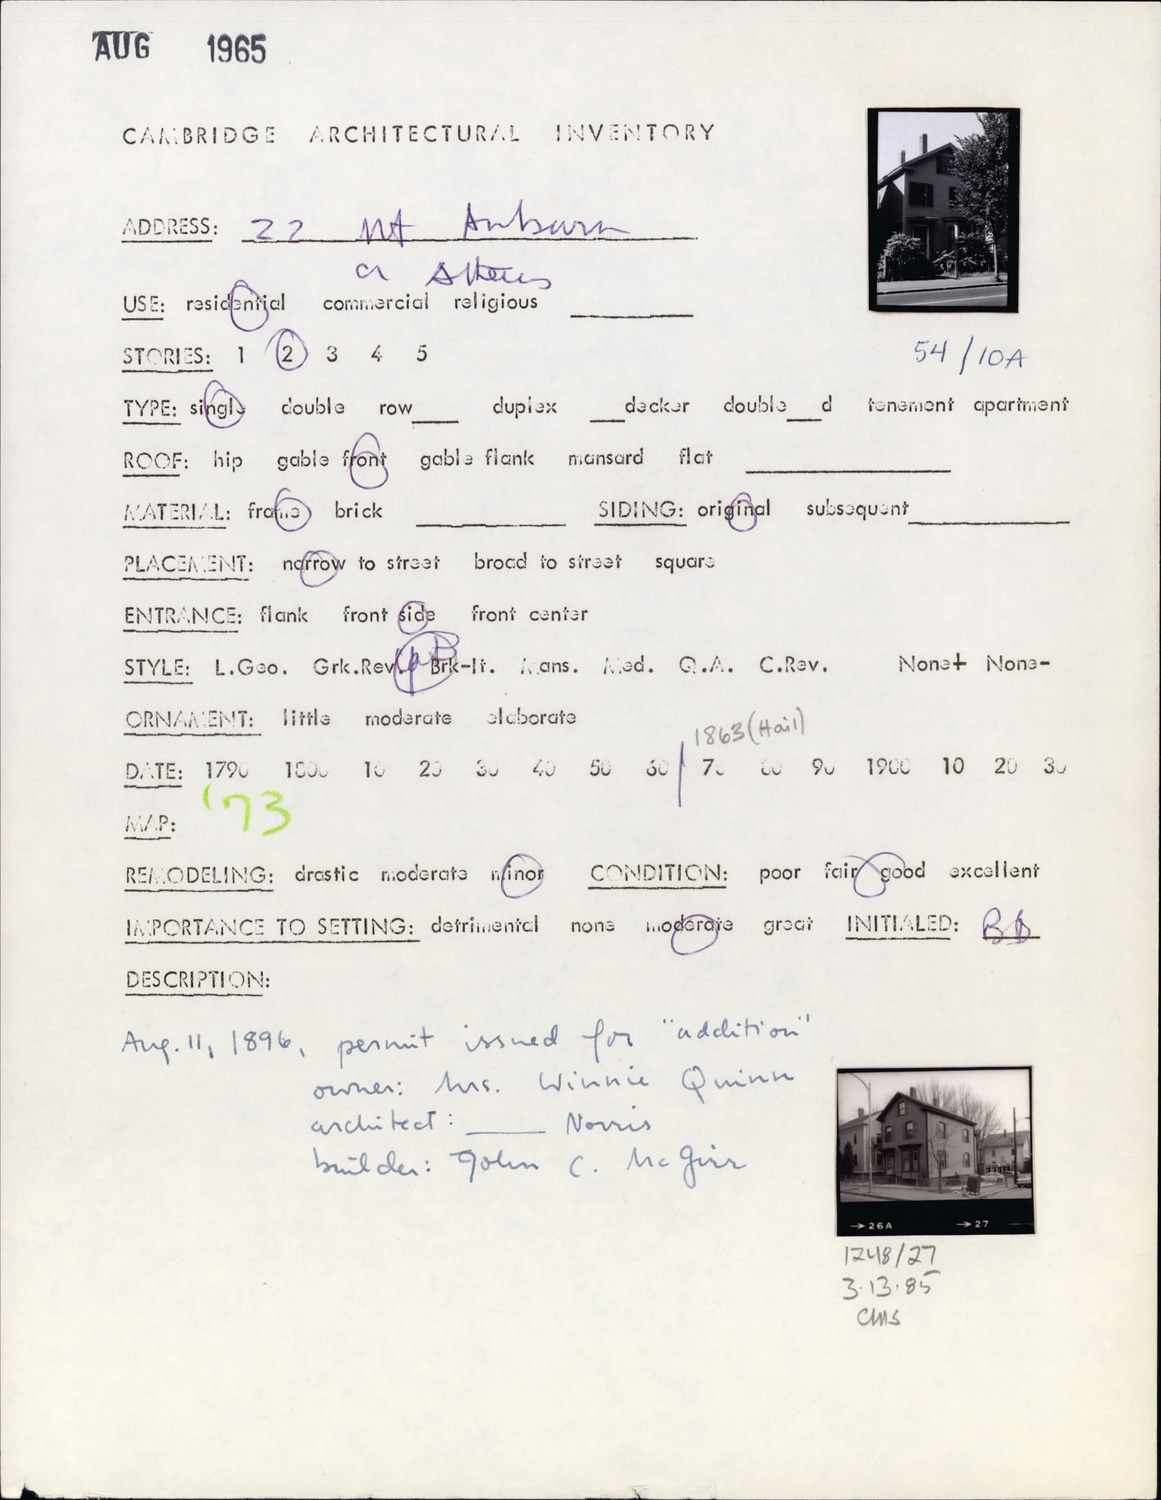 AUG 1965
CAMBRIDGE ARCHITECTURAL INVENTORY
ADDRESS: 22 Mt Auburn
cr Athens
USE: residential commercial religious
54/10A
STORIES: 1 2 3 4 5
TYPE: single double row___ duplex ___decker double___d tenement apartment
ROOF: hip gable front gable flank mansard flat
MATERIAL: frame brick SIDING: original subsequent
PLACEMENT: narrow to street broad to street square
ENTRANCE: flank front side front center
STYLE: L.Geo. Grk.Rev. Brk-It. Mans. Med. Q.A. C.Rev. None+ None-
ORNAMENT: little moderate elaborate
1863 (Hail)
DATE: 1790 1800 10 20 30 40 50 60 70 80 90 1900 10 20 30
MAP: '73
REMODELING: drastic moderate minor CONDITION: poor fair good excellent
IMPORTANCE TO SETTING: detrimental none moderate great INITIALED: BB
DESCRIPTION:
Aug. 11, 1896, permit issued for "addition"
owner: Mrs. Winnie Quinn
architect: ___ Norris
builder: John C. McGirr
→26A →27
1248/27
3·13·85
CMS